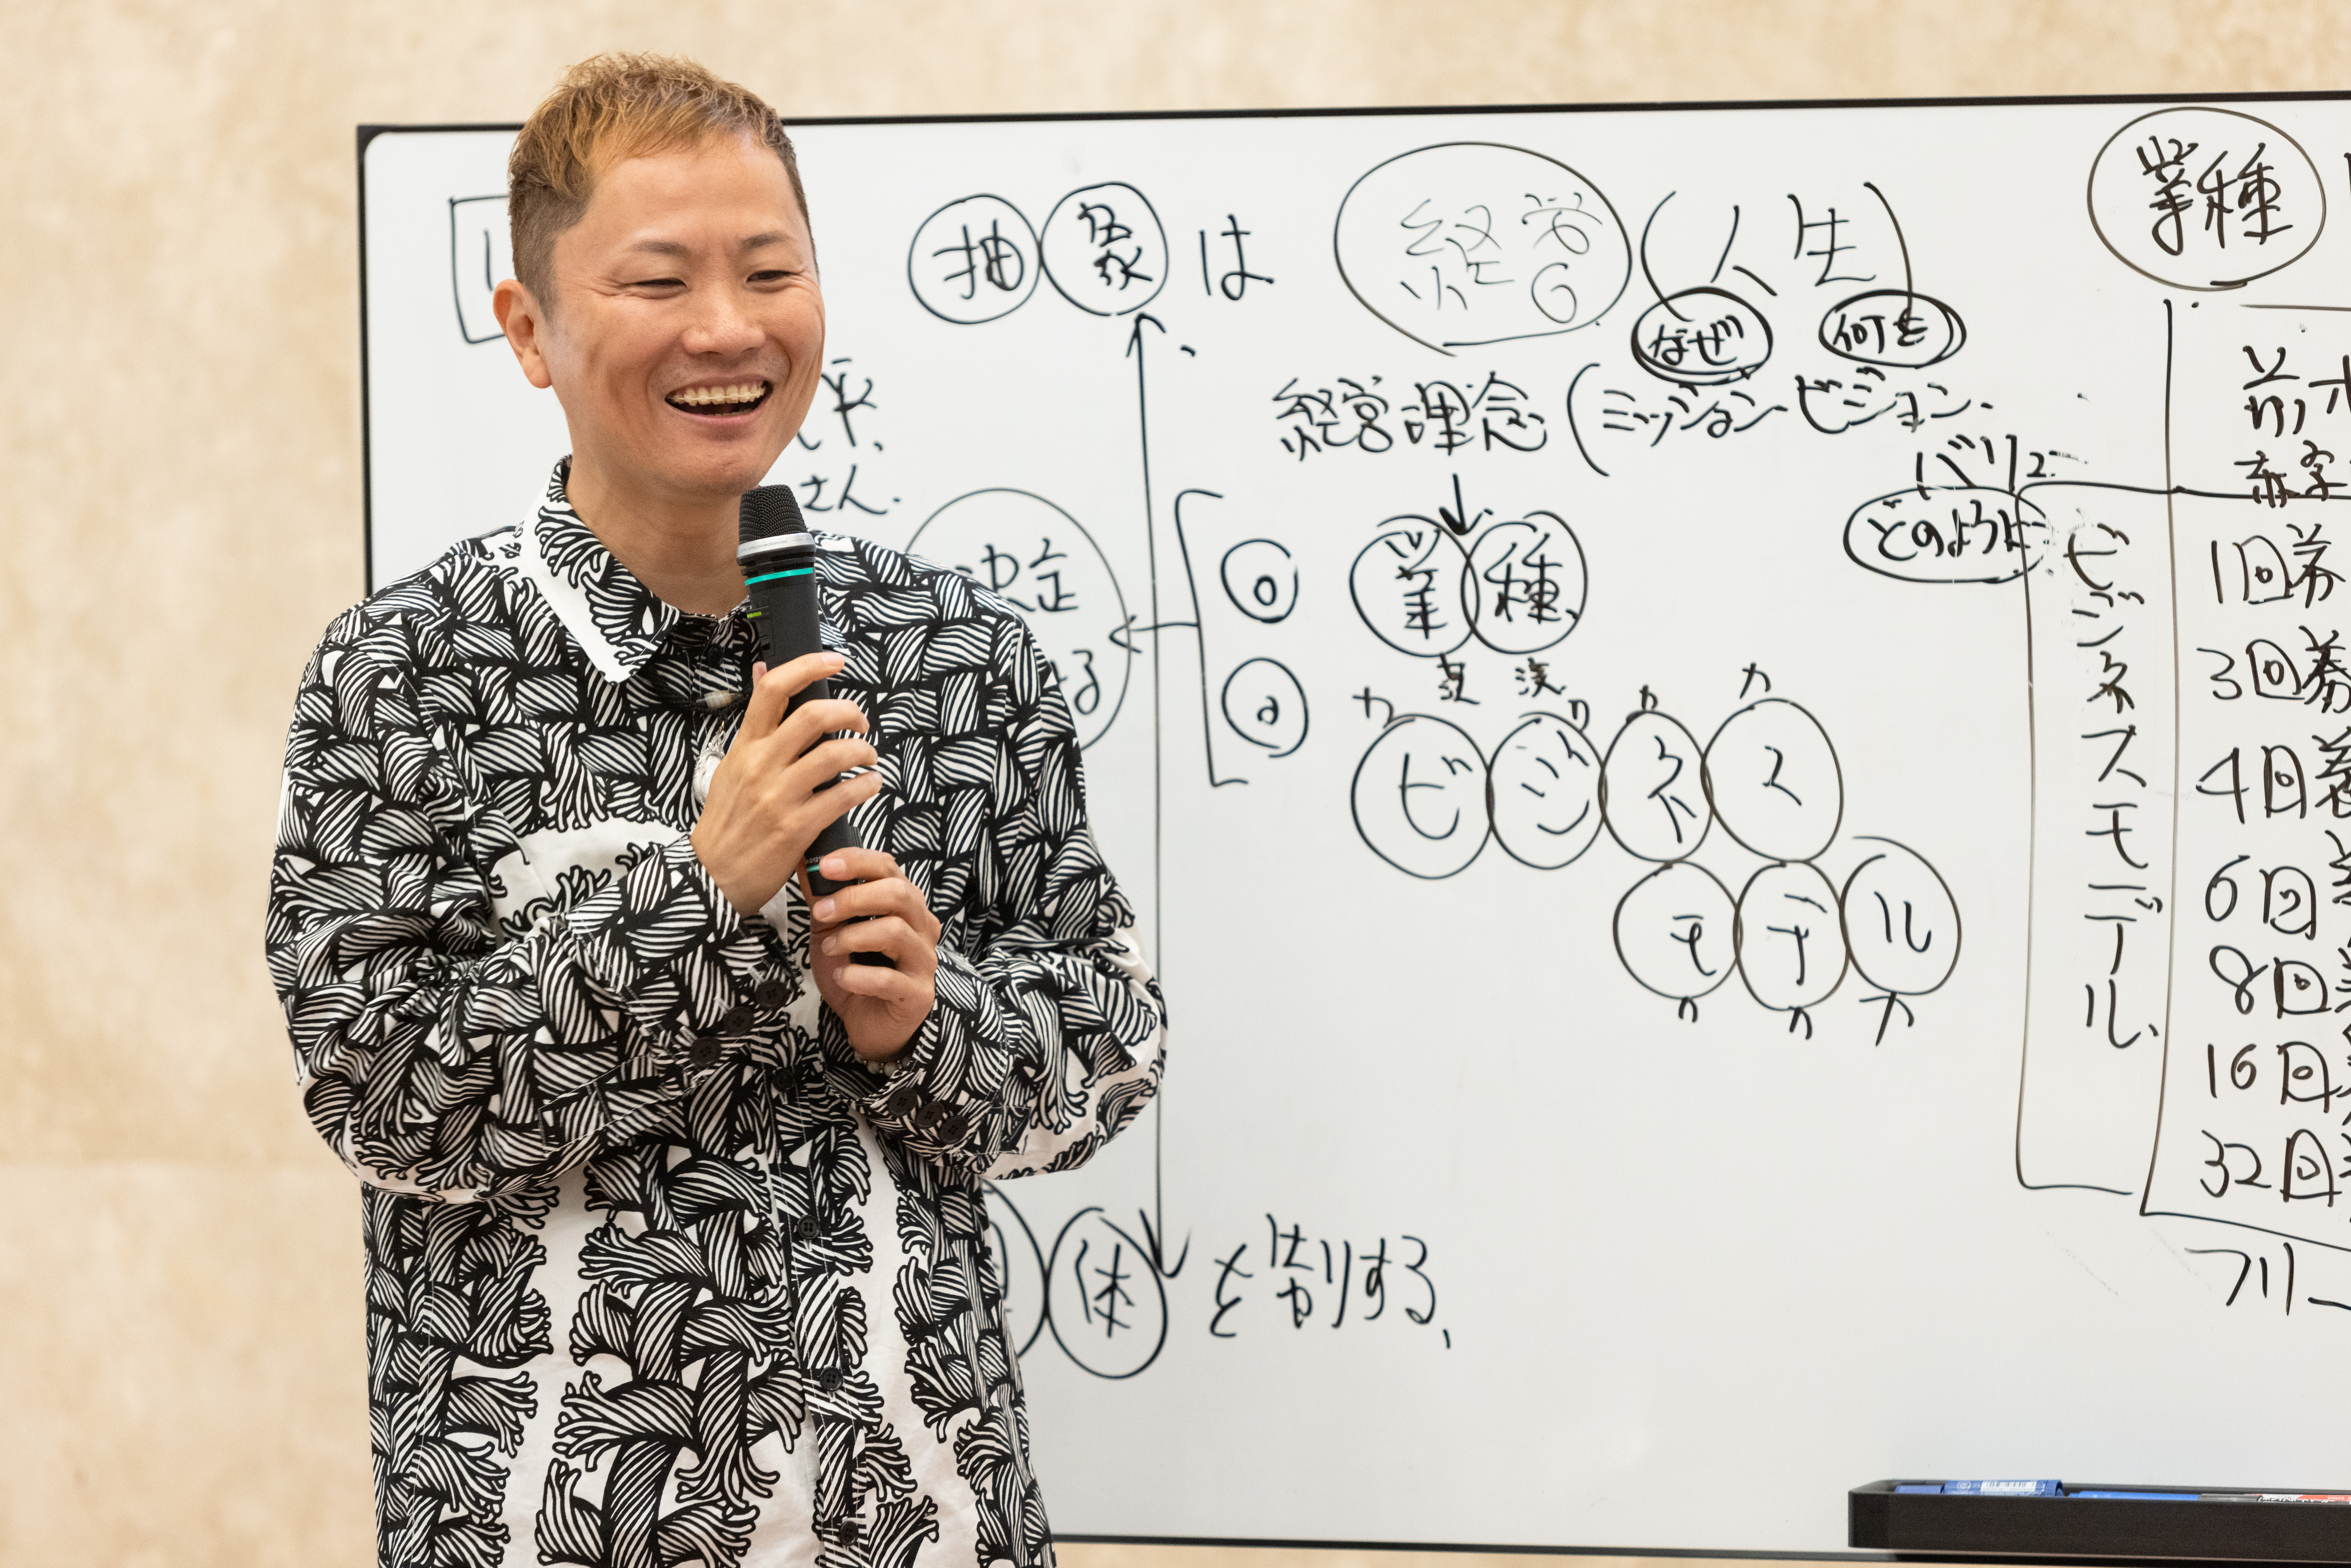 抽象は
経営
(人生)
なぜ
何を
経営理念(ミッション ビジョン
バリュー
どのように
さん
決定
業種
ビジネス
モデル
体を制する
業種
ビジネスモデル
赤字
1回券
3回券
4回券
6回
8回
16回
32回
フリー